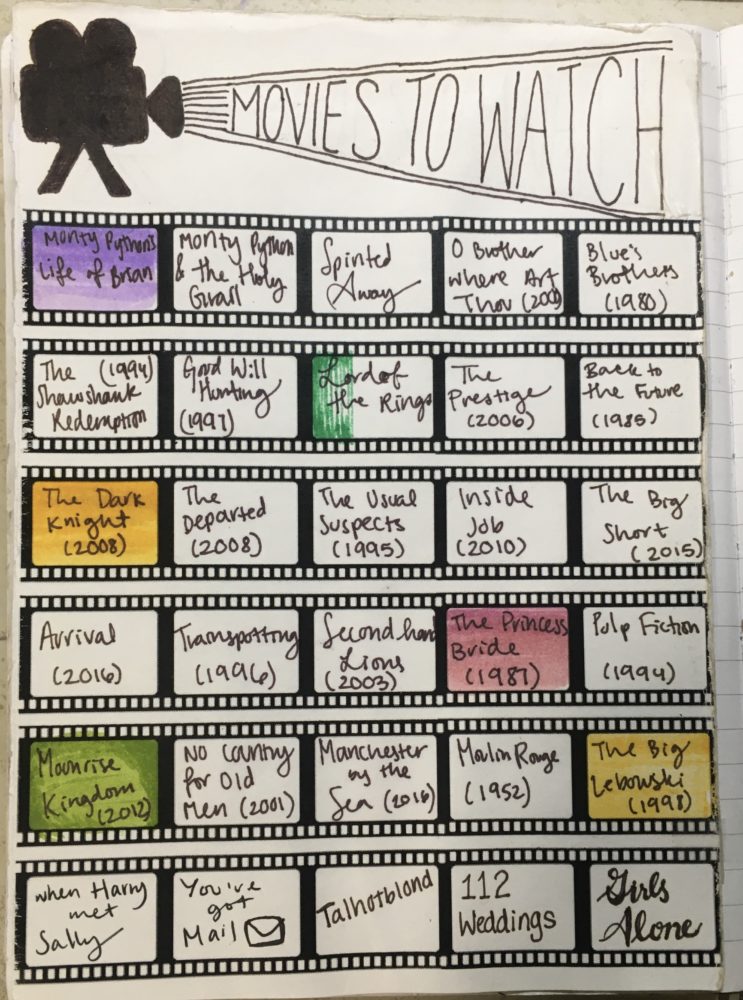 MOVIES TO WATCH
Monty Python's
Life of Brian
Monty Python
& the Holy
Grail
Spirited
Away
O Brother
where Art
Thou (2000)
Blue's
Brothers
(1980)
The (1994)
Shawshank
Redemption
Good Will
Hunting
(1997)
Lord of
the Rings
The
Prestige
(2006)
Back to
the Future
(1985)
The Dark
Knight
(2008)
The
Departed
(2008)
The Usual
Suspects
(1995)
Inside
Job
(2010)
The Big
Short
(2015)
Arrival
(2016)
Trainspotting
(1996)
Secondhand
Lions
(2003)
The Princess
Bride
(1987)
Pulp Fiction
(1994)
Moonrise
Kingdom
(2012)
No Country
for Old
Men (2001)
Manchester
by the
Sea (2016)
Moulin Rouge
(1952)
The Big
Lebowski
(1998)
when Harry
met
Sally
You've
got
Mail
Talhotblond
112
Weddings
Girls
Alone